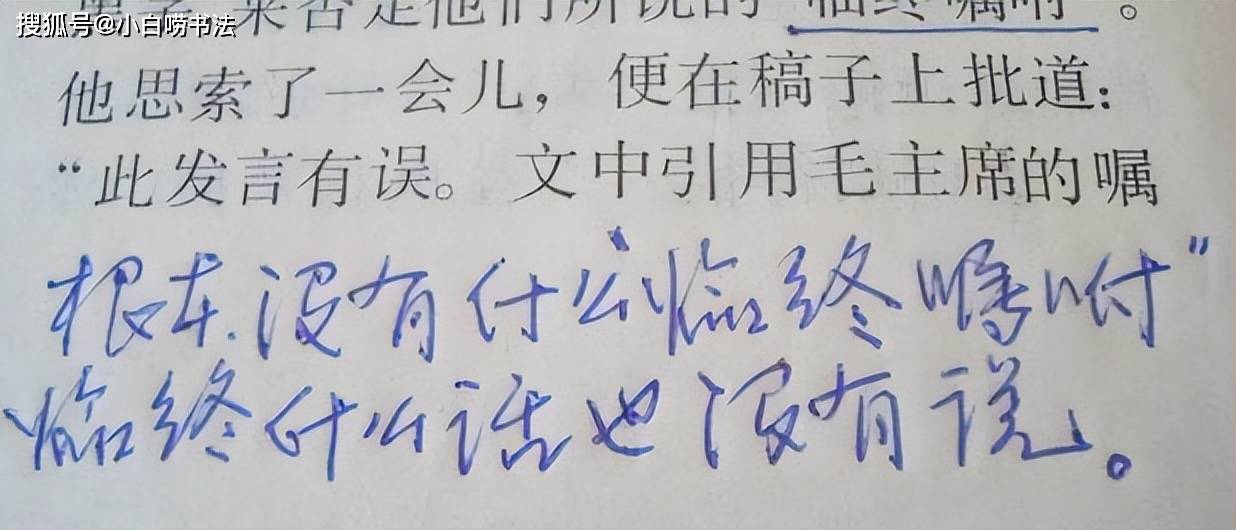 搜狐号@小白唠书法
来否是他们所说的“临终嘱咐”。
他思索了一会儿，便在稿子上批道：
“此发言有误。文中引用毛主席的嘱
根本没有什么“临终嘱咐”
临终什么话也没有说。